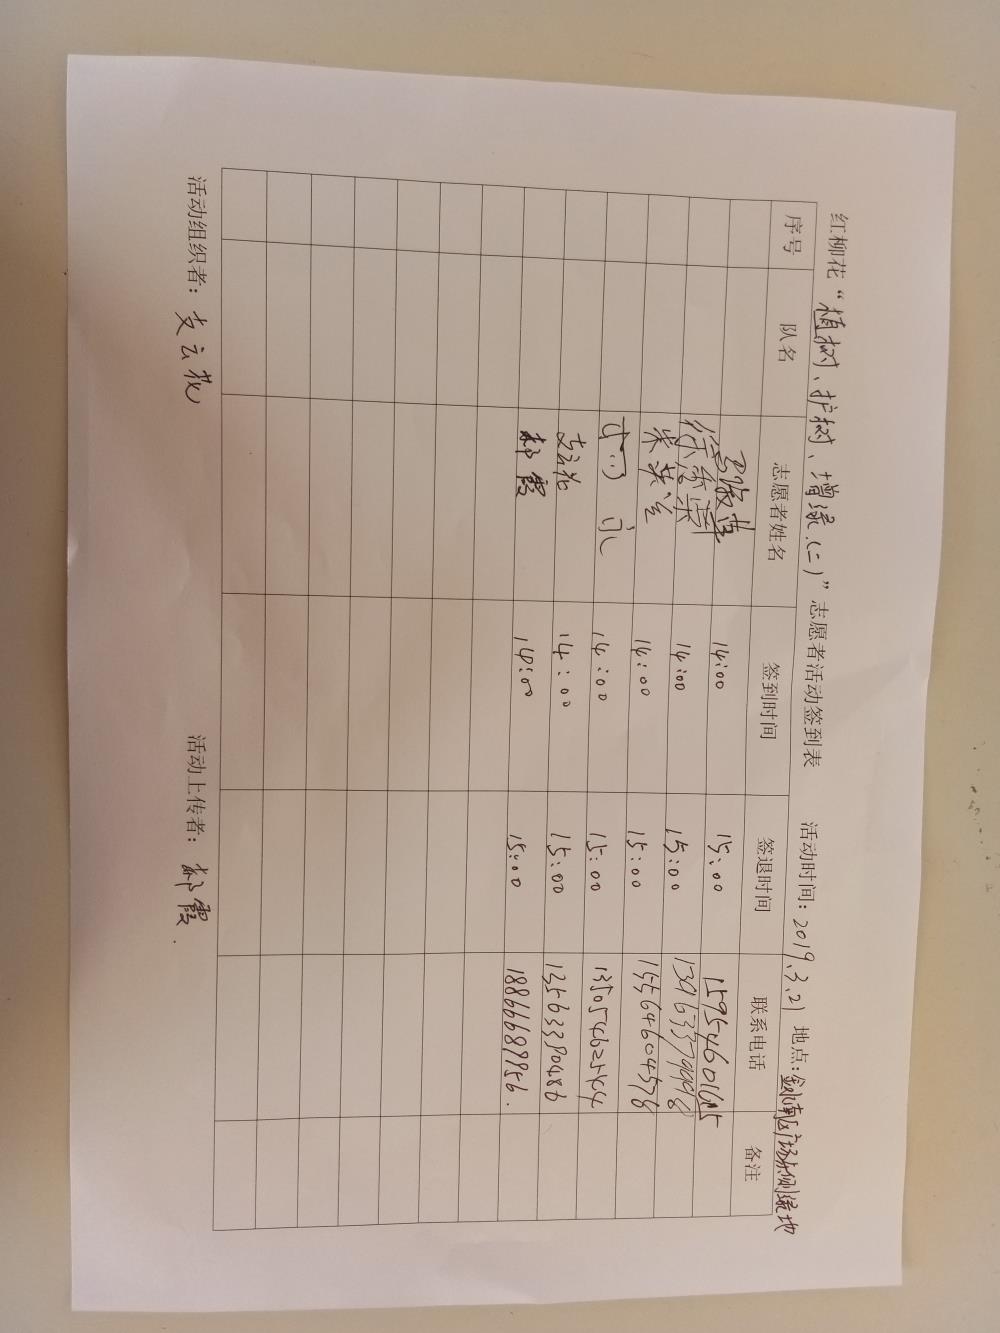 红柳花“植树、护树、增绿(二)”志愿者活动签到表 活动时间：2019.3.21 地点：金水南区广场东侧绿地
序号 队名 志愿者姓名 签到时间 签退时间 联系电话 备注
14:00 15:00 15954601615
14:00 15:00
14:00 15:00 15564604578
14:00 15:00 13505462544
支云花 14:00 15:00 13563380486
郝霞 14:00 15:00 18866689956.
活动组织者：支云花 活动上传者：郝霞.